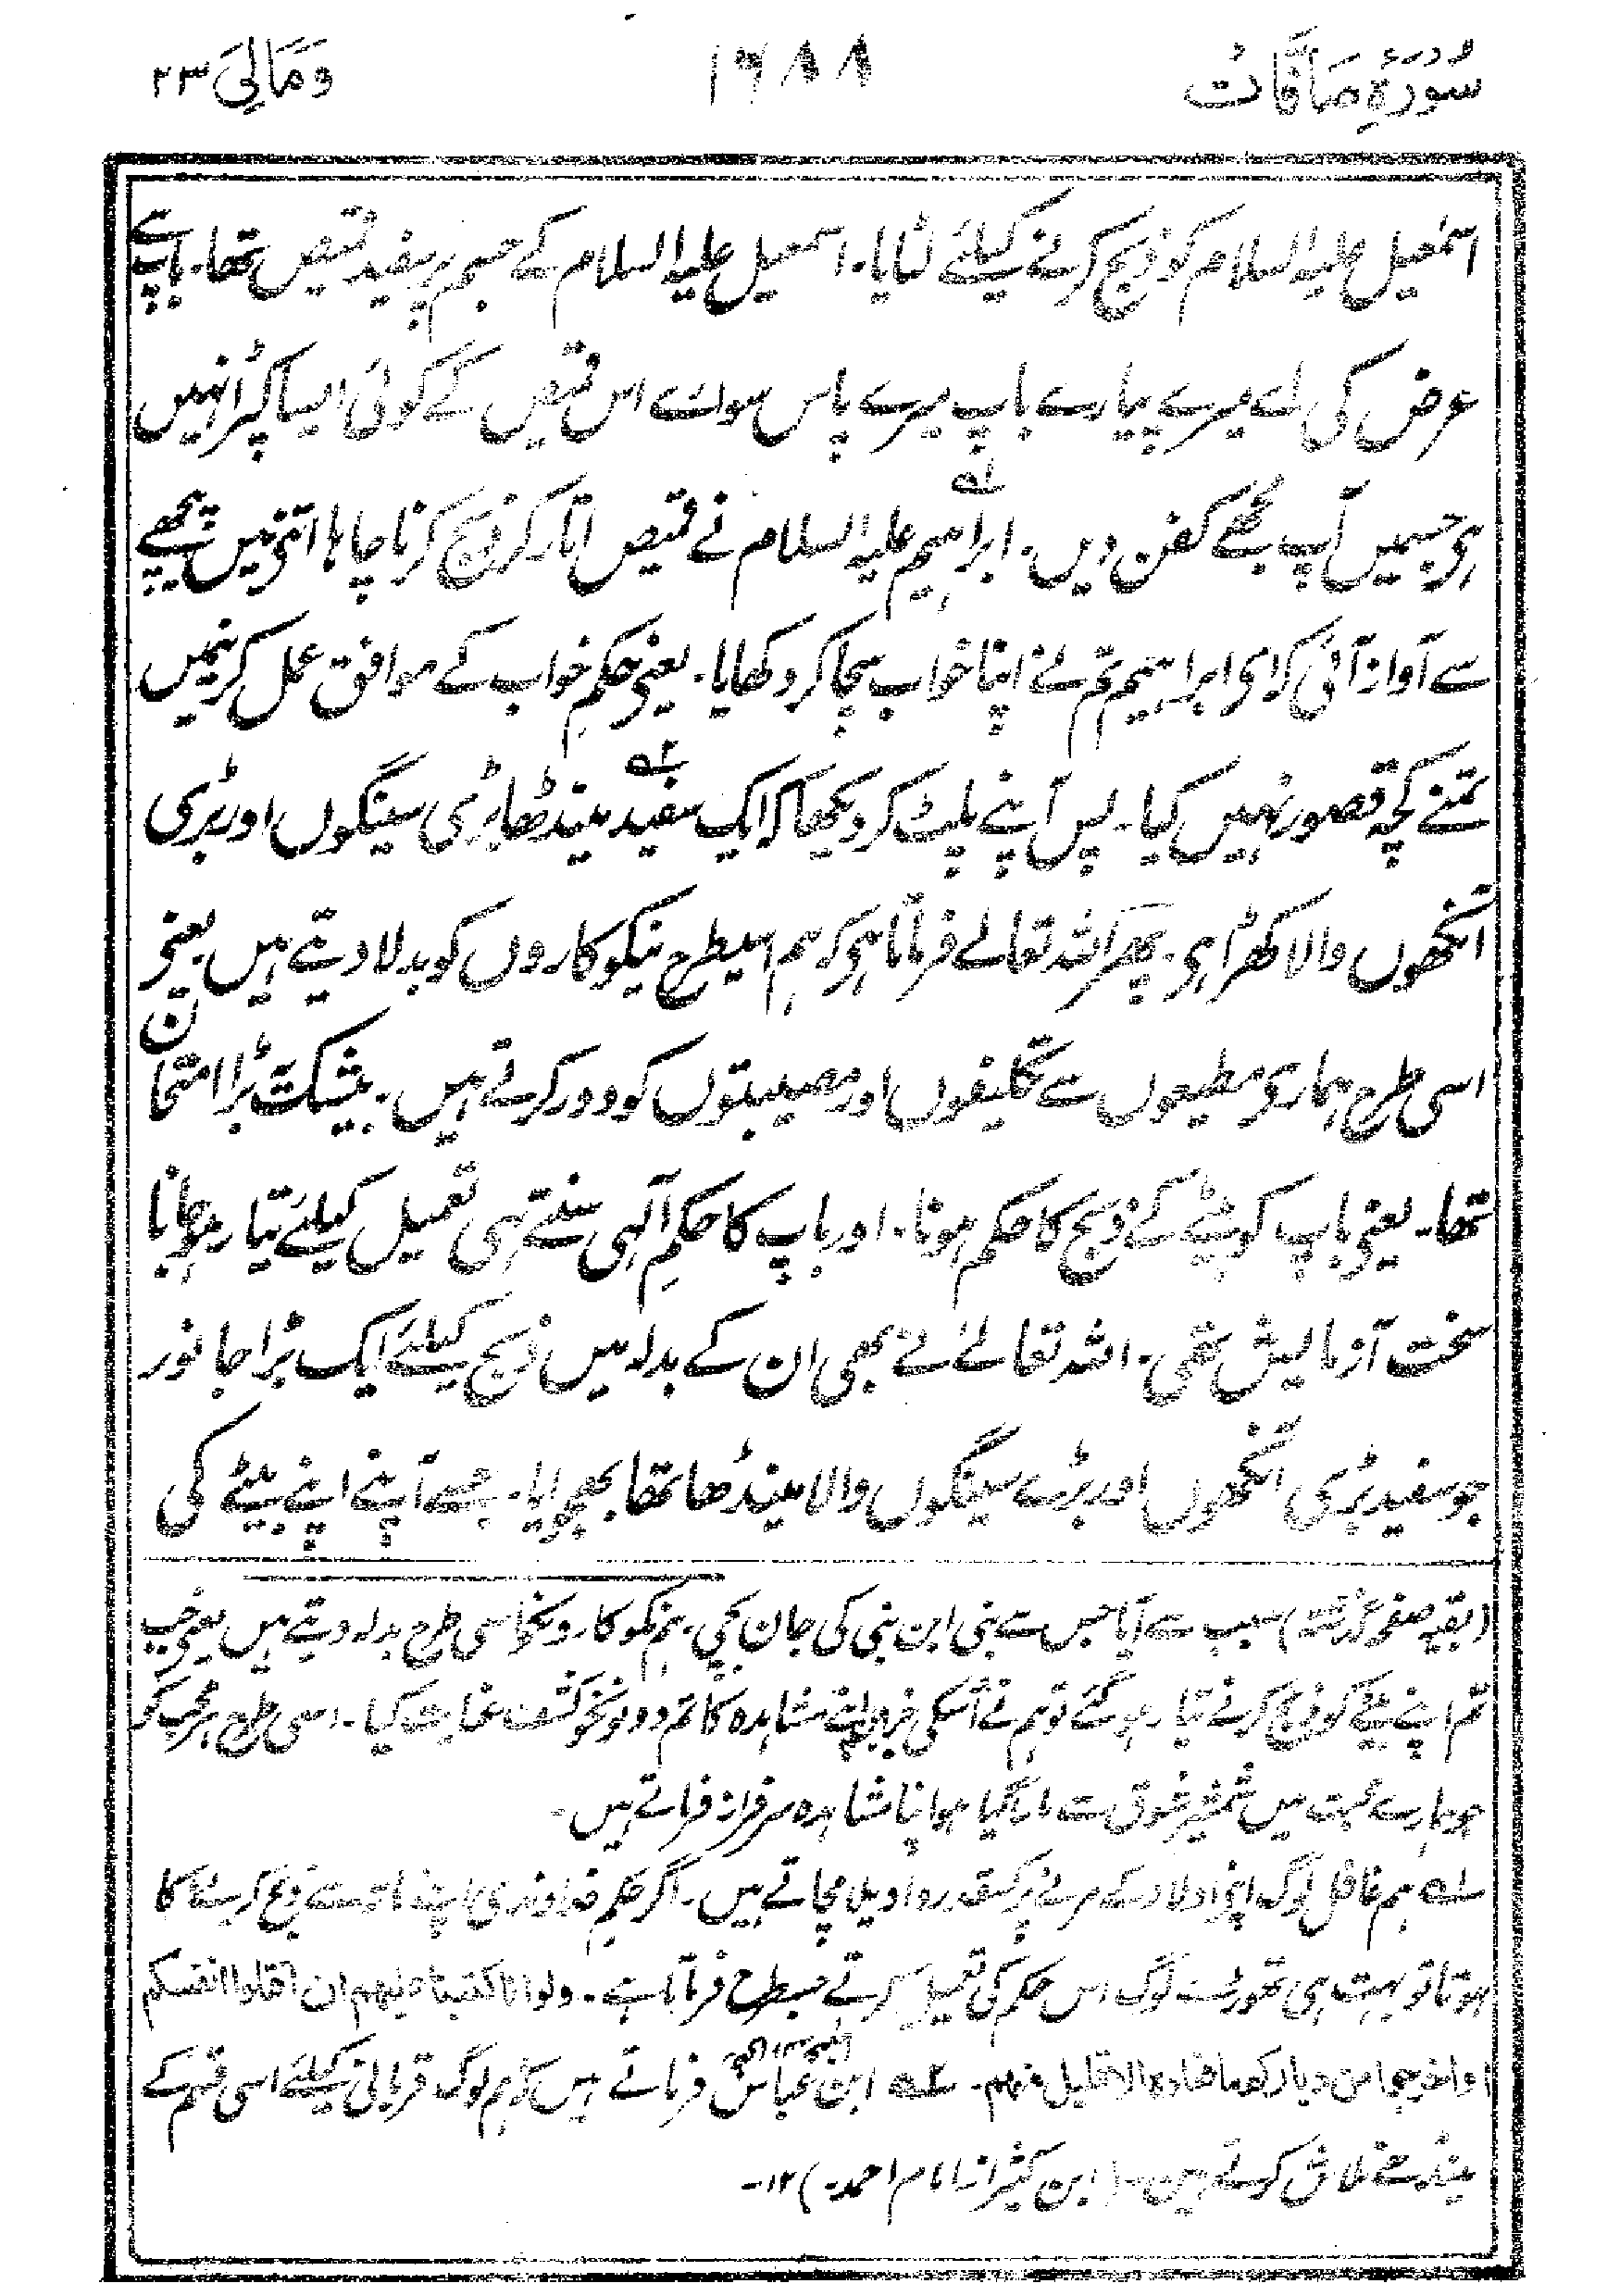 سورۂ صافات ۱۶۸۸ ومالی ۲۳
اسمٰعیل علیہ السلام کو ذبح کرنے کیلئے لٹایا۔ اسمٰعیل علیہ السلام کے جسم پر سفید قمیص تھا۔ باپ سے
عرض کی اے میرے پیارے باپ میرے پاس سوائے اس قمیص کے کوئی ایسا کپڑا نہیں
ہی جسمیں آپ مجھے کفن دیں۔ ابراہیم علیہ السلام نے قمیص اتار کر ذبح کرنا چاہا اتنی میں پیچھے
سے آواز آئی کہ ای ابراہیم تم نے اپنا خواب سچا کر دکھایا۔ یعنی حکمِ خواب کے موافق عمل کرنیمیں
تمنے کچھ قصور نہیں کیا۔ پس آپنے پلٹ کر دیکھا کہ ایک سفید مینڈھا بڑی سینگوں اور بڑی
آنکھوں والا کھڑا ہی۔ پھر اللہ تعالےٰ فرماتا ہی کہ ہم اسیطرح نیکوکاروں کو بدلا دیتے ہیں یعنی
اسی طرح ہماری مطیعوں سے تکلیفوں اور مصیبتوں کو دور کرتے ہیں۔ بیشک بڑا امتحان
تھا۔ یعنی باپ کو بیٹے کے ذبح کا حکم ہونا۔ اور باپ کا حکمِ آلٰہی سنتے ہی تعمیل کیلئے تیار ہوجانا
سخت آزمایش تھی۔ اللہ تعالےٰ نے بھی ان کے بدلہ میں ذبح کیلئے ایک بڑا جانور
جو سفید بڑی آنکھوں اور بڑے سینگوں والا مینڈھا تھا بھجوایا۔ جسے آپنے اپنے بیٹے کی
(بقیہ صفحہ گزشتہ) سبب سے آیا جس سے نبی ابن نبی کی جان بچی۔ ہم نیکوکارونکو اسی طرح بدلہ دیتے ہیں یعنی جب
تم اپنے بیٹے کو ذبح کرنے تیار ہوگئے تو ہم نے اُسکی اپنے مشاہدہ کا تم دونونکو کشف عنایت کیا۔ اسی طرح ہر محب کو
جو ہمارے محبت میں شمشیر شوق سے مارا گیا ہو اپنا مشاہدہ سرفراز فرماتے ہیں۔
۱؎ ہم غافل لوگ اپنی اولاد کے مرنے پر کسقدر واویلا مچاتے ہیں۔ اگر حکم خداوندی اپنے ہاتھ سے ذبح کرنے کا
ہوتا تو بہت ہی تھوڑے لوگ اس حکم کی تعمیل کرتے جسطرح فرماتا ہے۔ ولو انا کتبنا علیھم ان اقتلوا انفسکم
او اخرجوا من دیارکم ما فعلوہ الا قلیل منھم۔ ۲؎ ابن عباسؓ فرماتے ہیں کہ ہم لوگ قربانی کیلئے اسی قسم کے
مینڈھے تلاش کرتے ہیں۔ (ابن کثیر از امام احمد۔) ۱۲۔